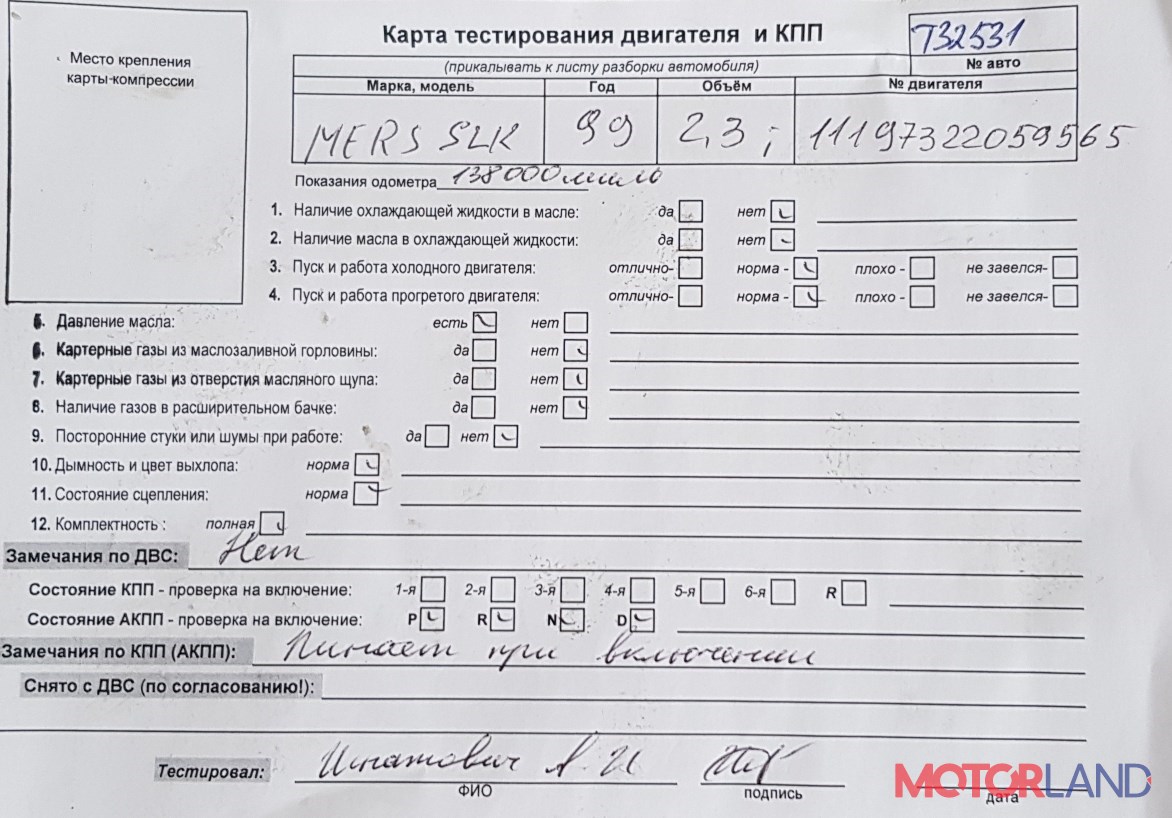 Место крепления
карты-компрессии
Карта тестирования двигателя и КПП
T32531
(прикалывать к листу разборки автомобиля)
№ авто
Марка, модель Год Объём № двигателя
MERS SLK 99 2,3; 11197322059565
Показания одометра 138000 миль
1. Наличие охлаждающей жидкости в масле: да нет
2. Наличие масла в охлаждающей жидкости: да нет
3. Пуск и работа холодного двигателя: отлично- норма - плохо - не завелся-
4. Пуск и работа прогретого двигателя: отлично- норма - плохо - не завелся-
5. Давление масла: есть нет
6. Картерные газы из маслозаливной горловины: да нет
7. Картерные газы из отверстия масляного щупа: да нет
8. Наличие газов в расширительном бачке: да нет
9. Посторонние стуки или шумы при работе: да нет
10. Дымность и цвет выхлопа: норма
11. Состояние сцепления: норма
12. Комплектность : полная
Замечания по ДВС: Нет
Состояние КПП - проверка на включение: 1-я 2-я 3-я 4-я 5-я 6-я R
Состояние АКПП - проверка на включение: P R N D
Замечания по КПП (АКПП): Пинает при включении
Снято с ДВС (по согласованию!):
Тестировал: Игнатович А. И
ФИО подпись дата
MOTORLAND